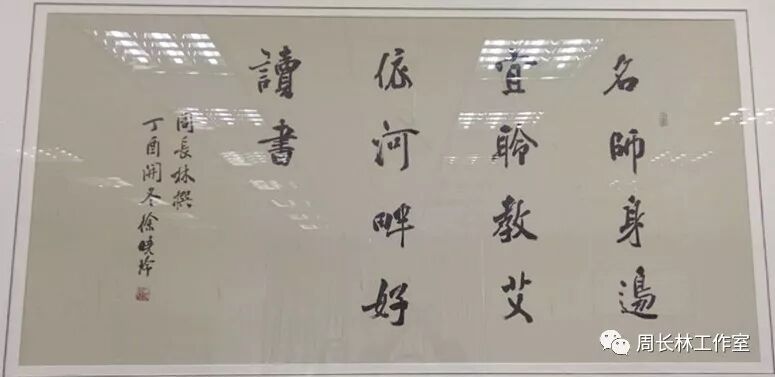 名師身邊
宜聆教艾
依河畔好
讀書
周長林撰
丁酉開冬徐曉
周长林工作室